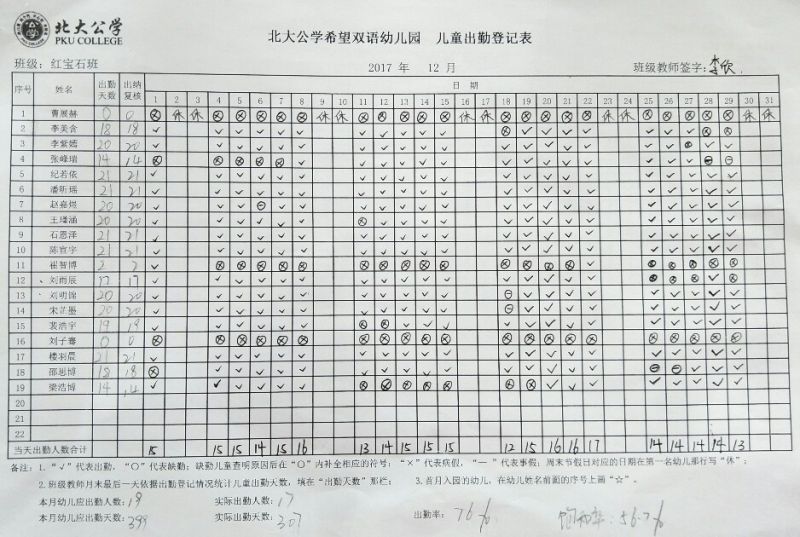 北大公学
PKU COLLEGE
北大公学希望双语幼儿园 儿童出勤登记表
班级：红宝石班 2017 年 12 月 班级教师签字：李欣
序号 姓名 出勤天数 出纳复核 日期
1 2 3 4 5 6 7 8 9 10 11 12 13 14 15 16 17 18 19 20 21 22 23 24 25 26 27 28 29 30 31
1 曹展赫 0 0 ⊗ 休 休 ⊗ ⊗ ⊗ ⊗ ⊗ 休 休 ⊗ ⊗ ⊗ ⊗ ⊗ 休 休 ⊗ ⊗ ⊗ ⊗ ⊗ 休 休 ⊗ ⊗ ⊗ ⊗ ⊗ 休 休
2 李美含 18 18
3 李紫嫣 20 20
4 张峰瑞 14 14
5 纪若依 21 21
6 潘昕瑶 21 21
7 赵嘉煜 20 20
8 王瑾涵 20 20
9 石恩泽 21 21
10 陈宣宇 21 21
11 崔智博 2 2
12 刘雨辰 17 17
13 刘明锦 20 20
14 宋芷墨 20 20
15 裴浩宇 19 19
16 刘子骞 0 0
17 楼羽晨 21 21
18 邵思博 18 18
19 梁浩博 14 14
20
21
22
当天出勤人数合计 15 15 15 14 15 16 13 14 15 15 15 12 15 16 16 17 14 14 14 14 13
备注：1.“√”代表出勤，“○”代表缺勤；缺勤儿童查明原因后在“○”内补全相应的符号：“×”代表病假，“—”代表事假；周末节假日对应的日期在第一名幼儿那行写“休”；
2.班级教师月末最后一天依据出勤登记情况统计儿童出勤天数，填在“出勤天数”那栏； 3.首月入园的幼儿，在幼儿姓名前面的序号上画“☆”。
本月幼儿应出勤人数：19 实际出勤人数：17
本月幼儿应出勤天数：399 实际出勤天数：307 出勤率：76% 56.7%